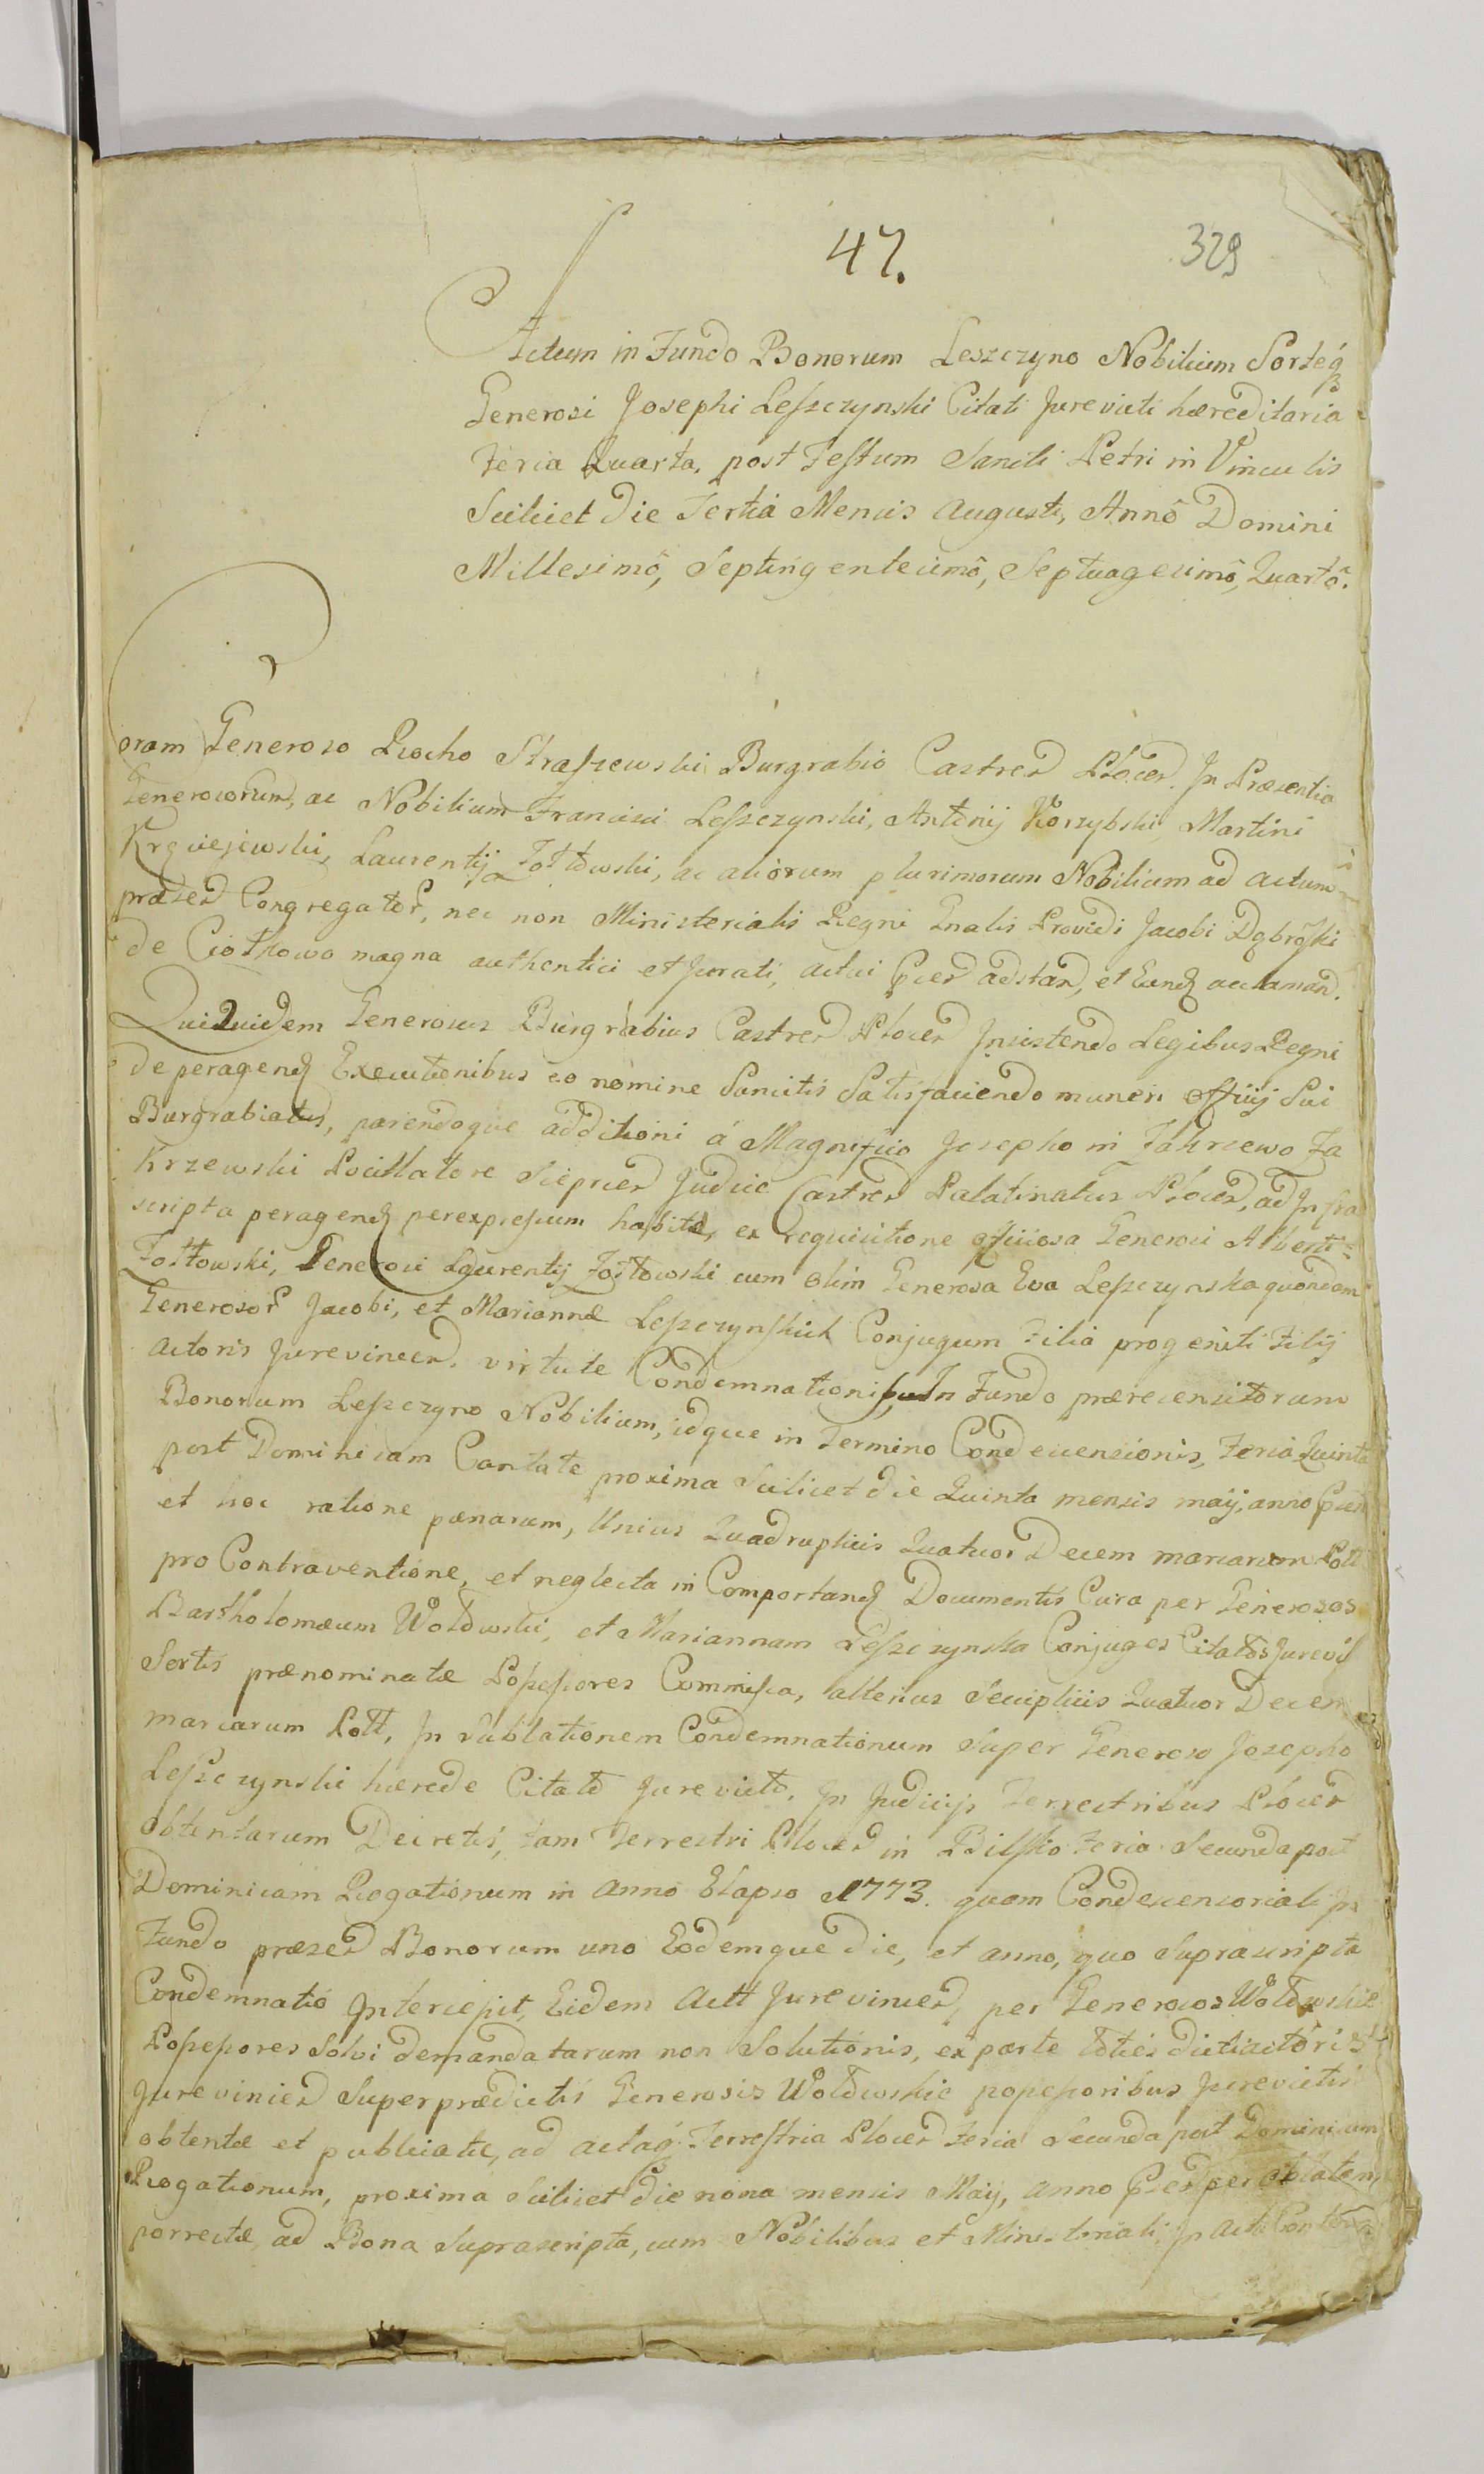 47.
329
Actum in Fundo Bonorum Leszczyno Nobilium Sorteq
Generosi Josephi Leszczynski Citati Jurevicti hæreditaria
Feria Quarta, post Festum Sancti Petri in Vinculis
Scilicet Die Tertia Mensis Augusti, Annô Domini
Millesimô, Septingentesimô, Septuagesimô, Quartô.
Coram Generoso Rocho Straszewski Burgrabio Castren Plocen. In Præsentia
Generosorum, ac Nobilium Francisci Leszczynski, Antonij Korzybski, Martini
Laurentij Żołtowski, ac aliorum plurimorum Nobilium ad actum
præsen Congregator, nec non Ministerialis Regni Gnalis Providi Jacobi Dąbroski
de Ciołkowo magna authentici et Jurati, actui adstan, et Eund acclaman.
Qui Quidem Generosus Burgrabius Castren Plocen Insistendo Legibus Regni
de peragend Executionibus eo nomine Sancitis Satisfaciendo muneri officij Sui
Burgrabiatus, parendoque additioni á Magnifico Josepho in Zakrzewo Za
Krzewski Pocillatore Sieprcen Judice Castren Palatinatus Plocen, ad Infra
scripta peragend per expressum habitæ, ex requisitione officiosa Generosi Alberti
Żołtowski, Generosi Laurentij Żołtowski cum olim Generosa Eva Leszczynska quondam
Generosor Jacobi, et Mariannæ Leszczynskich Conjugum Filia progeniti Filij
Actoris Jurevincen. virtute Condemnationis, In Fundo prærecensitorum
Bonorum Leszczyno Nobilium, idque in Termino Condescensionis, Feria Quinta
post Dominicam Cantate proxima Scilicet die Quinta mensis maij, anno
et hoc ratione pænarum, Unius Quadruplicis Quatuor Decem marcarum Poll
pro Contraventione, et neglecta in Comportand Documentis Cura per Generosos
Bartholomæum Wołowski, et Mariannam Leszczynska Conjuges Citatos
Sortis prænominatæ Possessores Commissa, alterius Sexiplicis Quatuor Decem
marcarum Poll, In Sublationem Condemnationum Super Generoso Josepho
Leszczynski hærede Citato Jurevicto, In Judicijs Terrestribus Plocen
obtentarum Decretis, tam Terrestri Plocen in Bielsko Feria Secunda post
Dominicam Rogationum in Anno Elapso 1773. quam Condescensoriali In
Fundo præsen Bonorum uno Eodemque die, et anno, quo Suprascripta
Condemnatio Intercessit, Eidem Actt Jurevincen, per Generosos Wołowskie
Possessores Solvi demandatarum non Solutionis, ex parte toties dicti actoris
Jurevincen Super prædictis Generosis Wołowskie possessoribus Jurevictis
obtentæ et publicatæ, ad actaq Terrestria Plocen Feria Secunda post Dominicam
Rogationum, proxima Scilicet die nona mensis Maij, anno per oblatam
porrectæ, ad Bona Suprascripta, cum Nobilibus et Ministeriali, In Actu